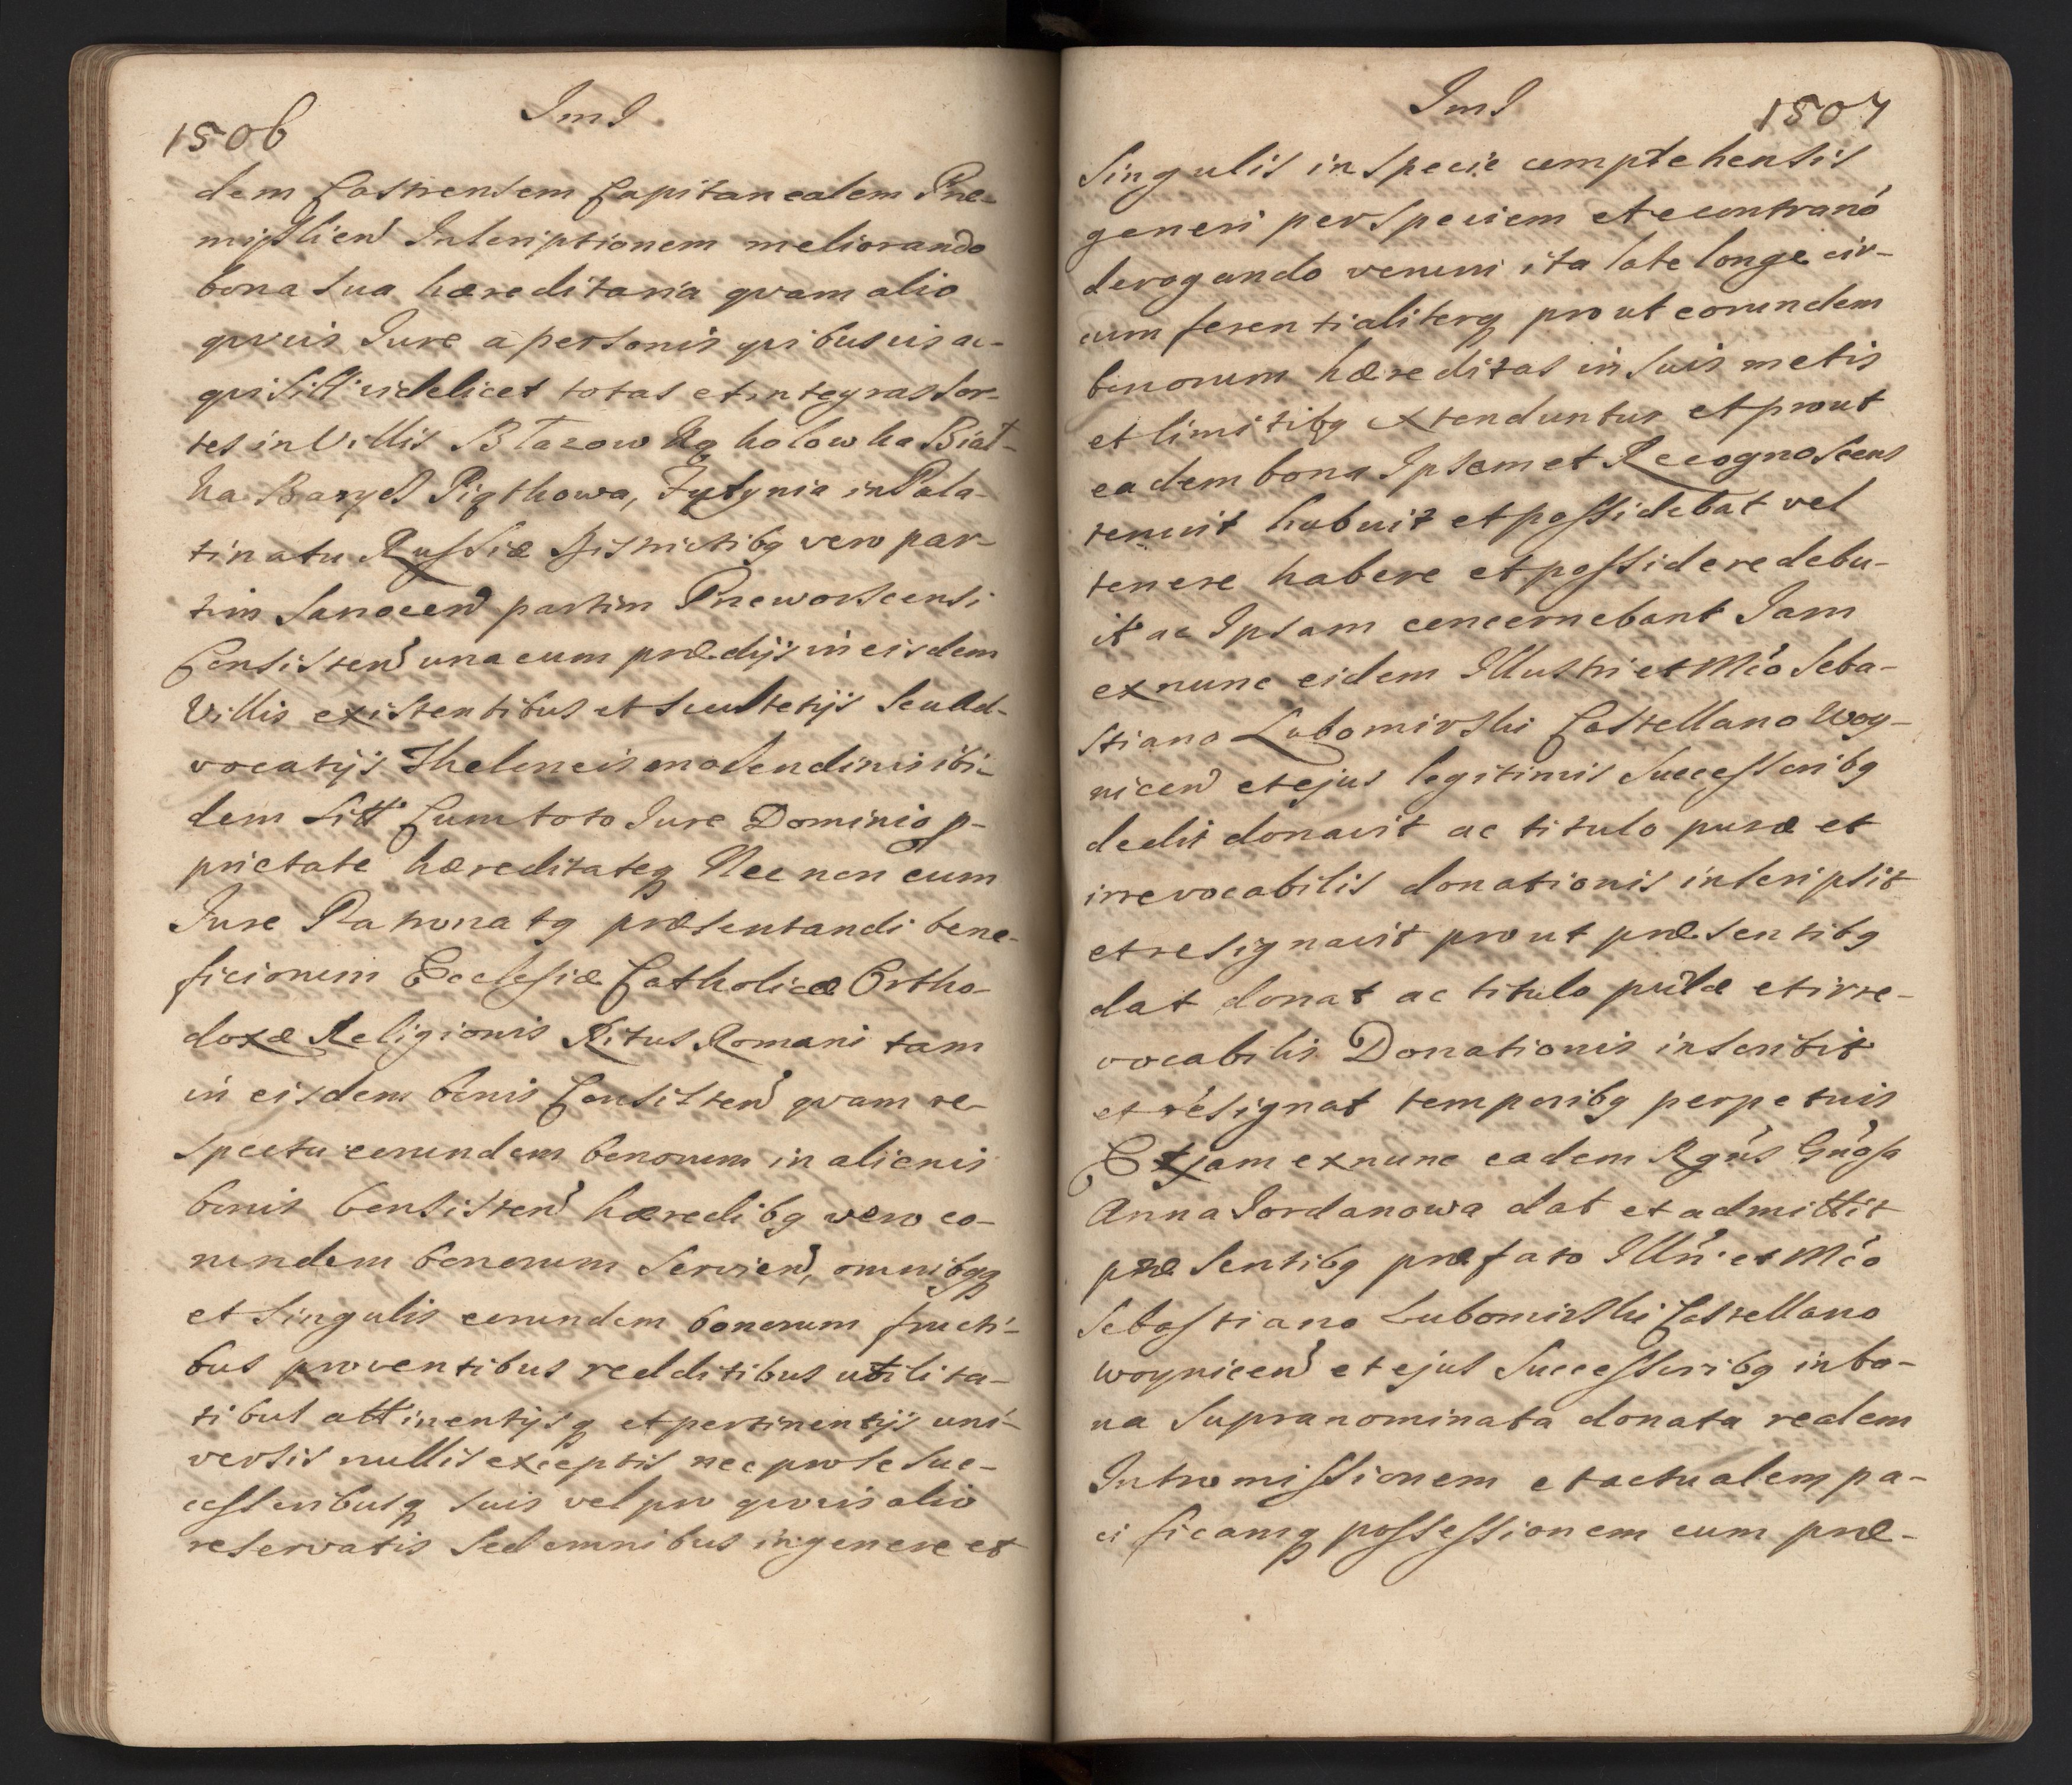 1506
ImI
dem Castrensem Capitanealem Præ-
mislien Inscriptionem meliorando
bona sua hæreditaria qvam alio
qvvis Jure a personis qvibusvis ac-
qvisitt videlicet totas et integras sor-
tes in Villis Błazow Ką kolow ka Biał-
ka Barycz Piątkowa, Futynia in Pala-
tinatu Russiæ Districtibq vero par-
tim Sanocen partim Przeworscensi
Consisten una cum prædijs in eisdem
Villis existentibus et scultetijs seu ad-
vocatijs Theloneis molendinis ibi-
dem sitt Cum toto Jure Dominio p-
prietate hæreditateq Nec non cum
Jure Patronatq præsentandi bene-
ficiorum Ecclesiæ Catholicæ Ortho-
doxæ Religionis Ritus Romani tam
in eisdem bonis Consisten qvam re-
spectu eorundem bonorum in alienis
bonis consisten hæredibq vero eo-
rundem bonorum servien, omnibqq
et singulis eorundem bonorum fructi-
bus proventibus redditibus utilita-
tibus attinentijsq et pertinentijs uni-
versis nullis exceptis nec pro se suc-
cessoribusq suis vel pro qvvis alio
reservatis sed omnibus in genere et
ImI
1507
singulis in specie comprehensis
generi per speciem et e contrario
derogando verum ita late longe cir-
cumferentialiterq prout eorundem
bonorum hæreditas in suis metis
et limitibq extenduntur et prout
eadem bona Ipsemet Recognoscens
tenuit habuit et possidebat vel
tenere habere et possidere debu-
it ac Ipsam concernebant Jam
ex nunc eidem Illustri et Mco Seba-
stiano Lubomirski Castellano Woy-
nicen et ejus legitimis Successoribq
dedit donavit ac titulo puræ et
irrevocabilis donationis inscripsit
et resignavit prout præsentibq
dat donat ac titulo puræ et irre-
vocabilis Donationis inscribit
et resignat temporibq perpetuis
Et jam ex nunc eadem Rgns Gnosa
Anna Jordanowa dat et admittit
præsentibq præfato Illri et Mco
Sebastiano Lubomirski Castellano
woynicen et ejus Successoribq in bo-
na supranominata donata realem
Intromissionem et actualem pa-
cificamq possessionem cum præ-